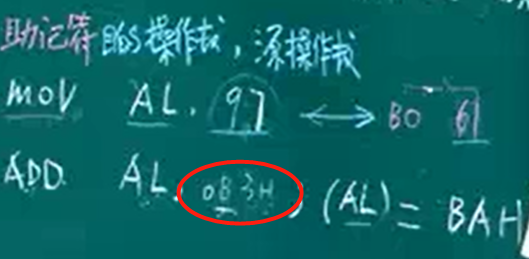 助记符 目的操作数，源操作数
MOV AL, 97 ⟷ B0 61
ADD AL, 0B3H, (AL) = BAH